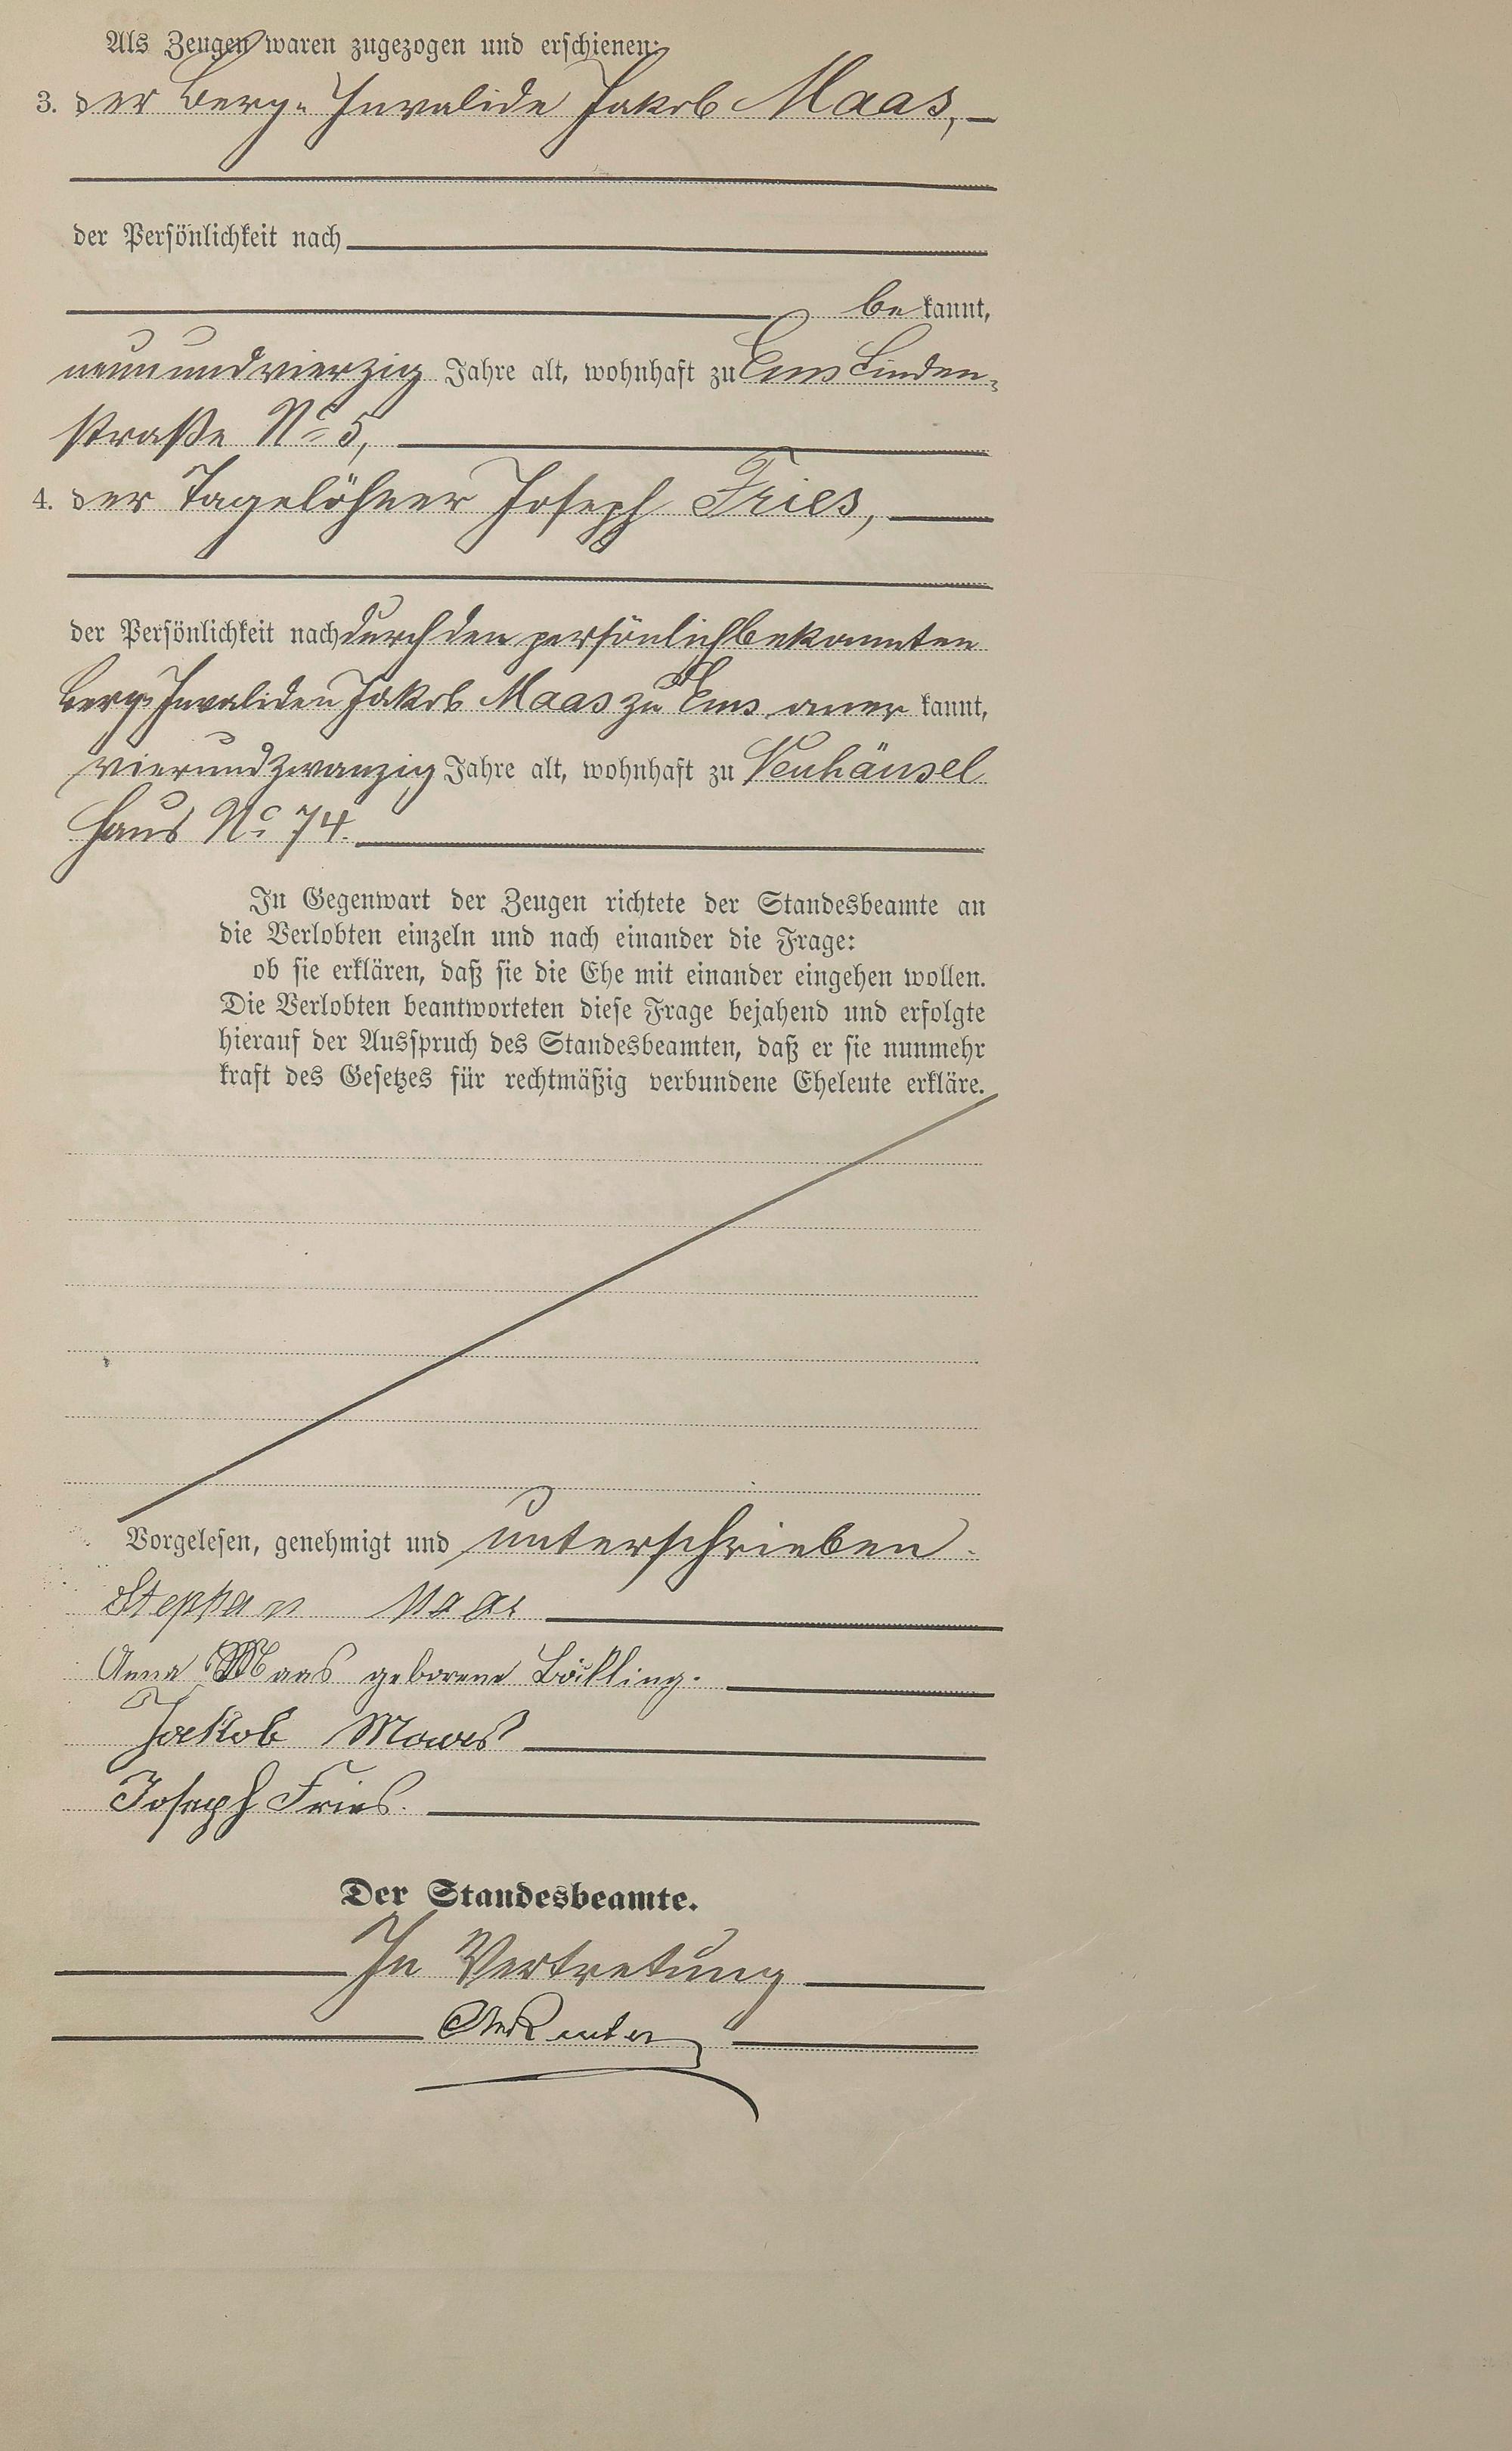 Als Zeugen waren zugezogen und erschienen:
3. der Berg-Invalide Jakob Maas,
der Persönlichkeit nach
be kannt,
neunundvierzig Jahre alt, wohnhaft zu Ems Linden-
straße No 5,
4. der Tagelöhner Joseph Fries,
der Persönlichkeit nach durch den persönlich bekannten
Berg-Invaliden Jakob Maas zu Ems aner kannt,
vierundzwanzig Jahre alt, wohnhaft zu Neuhäusel
Haus No 74.
In Gegenwart der Zeugen richtete der Standesbeamte an
die Verlobten einzeln und nach einander die Frage:
ob sie erklären, daß sie die Ehe mit einander eingehen wollen.
Die Verlobten beantworteten diese Frage bejahend und erfolgte
hierauf der Ausspruch des Standesbeamten, daß er sie nunmehr
kraft des Gesetzes für rechtmäßig verbundene Eheleute erkläre.
Vorgelesen, genehmigt und unterschrieben.
Stephan Maas
Anna Maas geborene
Jakob Maas
Joseph Fries.
Der Standesbeamte.
In Vertretung